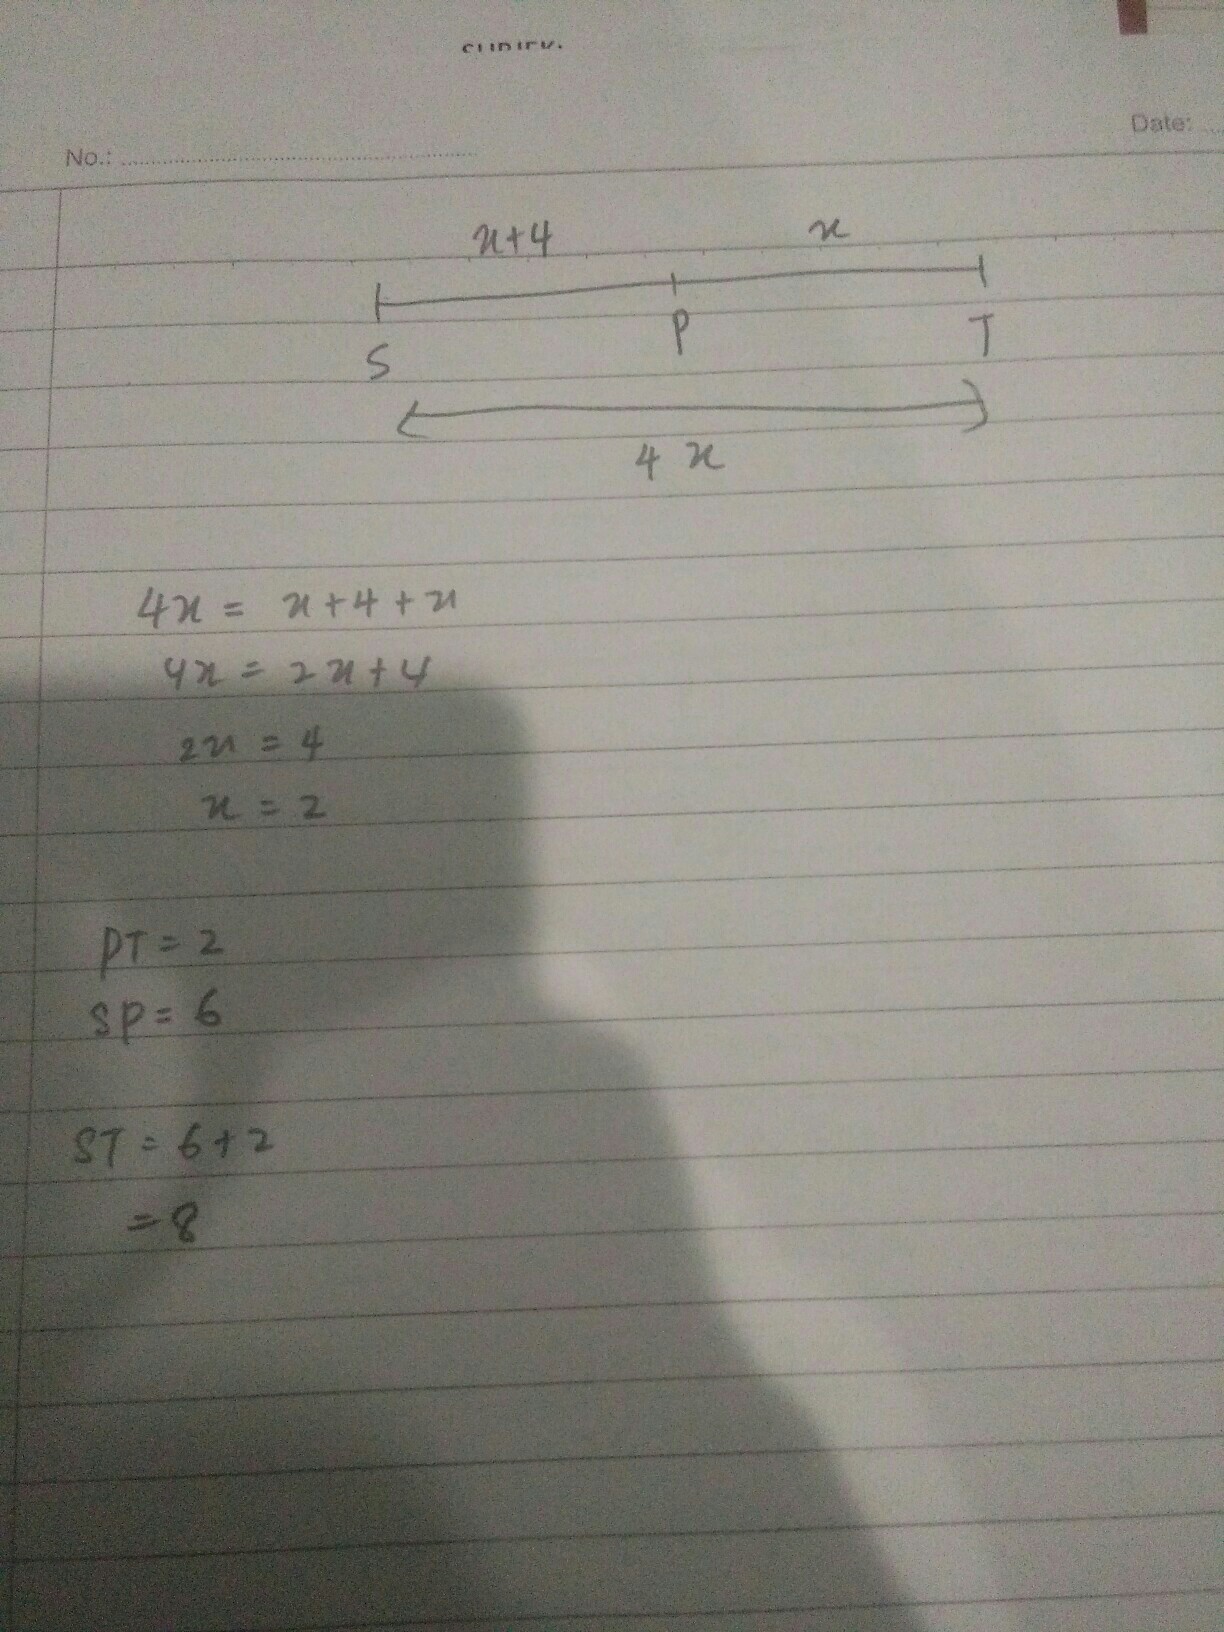 No.:
Date:
x+4 x
S P T
4x
4x = x+4+x
4x = 2x+4
2x = 4
x = 2
PT = 2
SP = 6
ST = 6+2
= 8